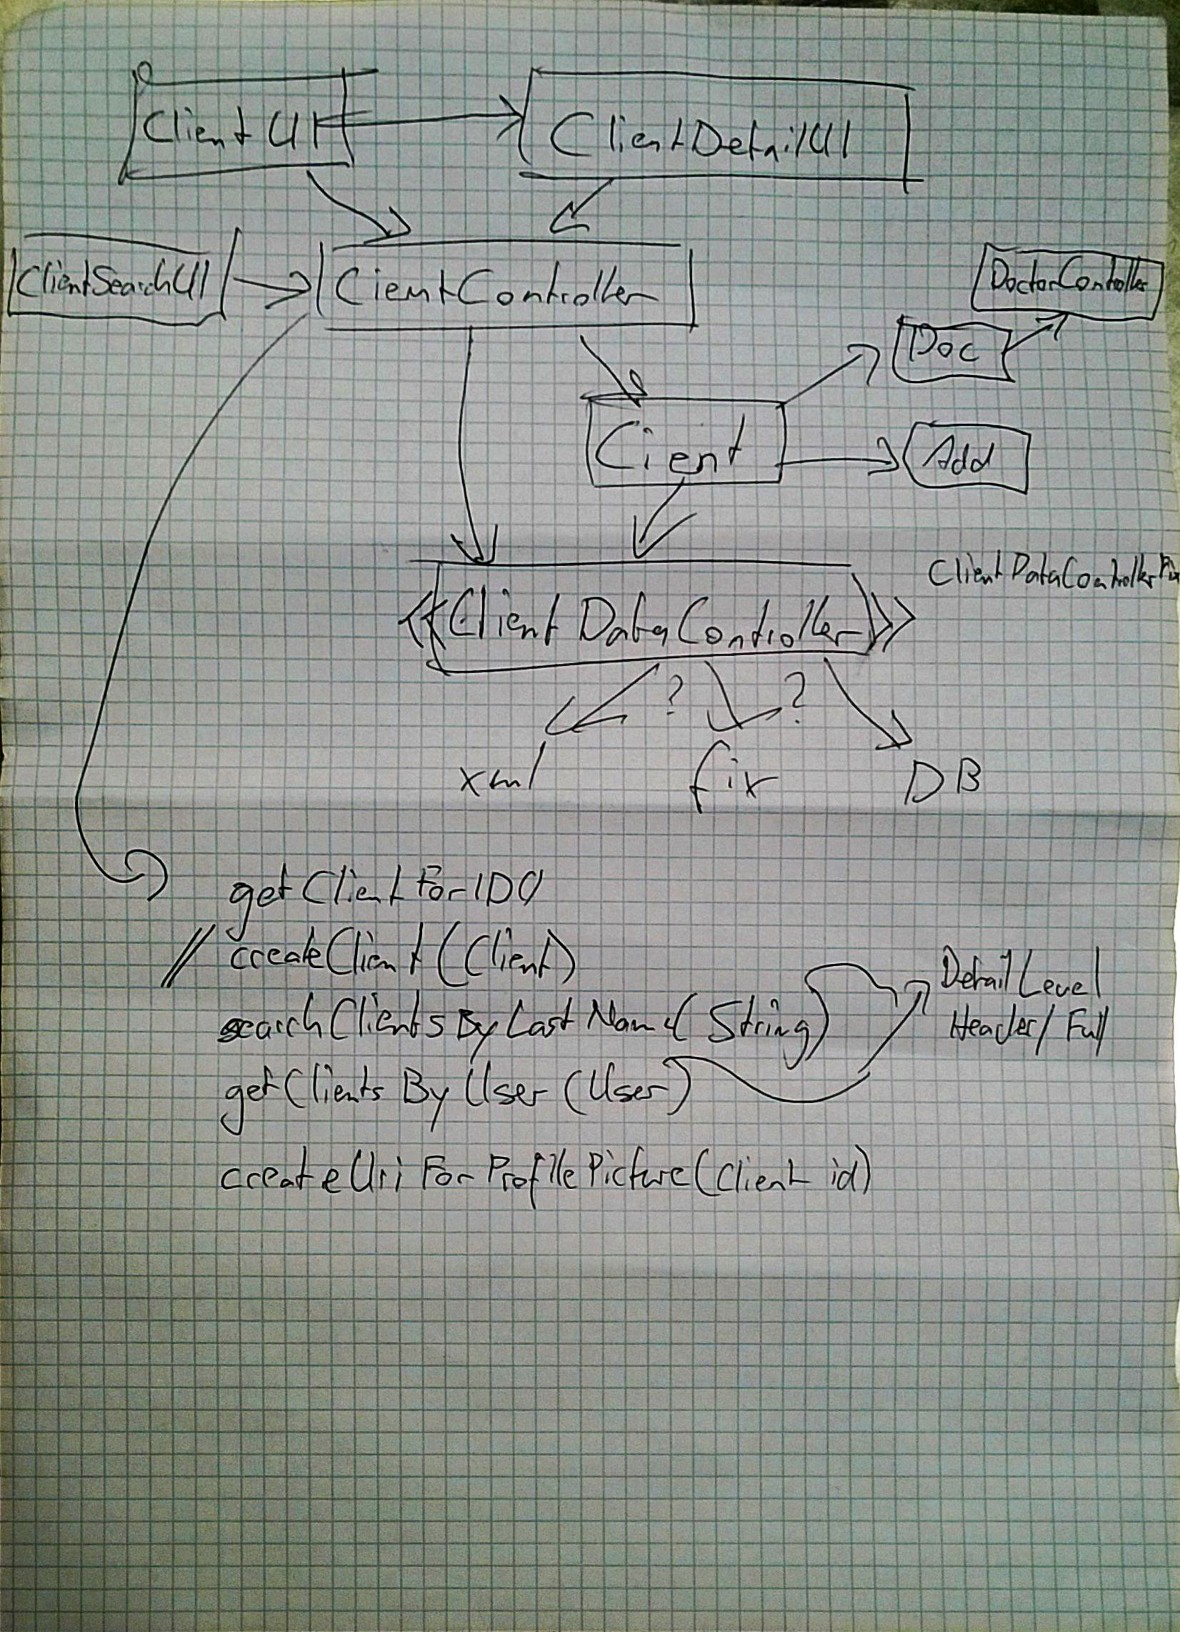 Client UI
ClientDetailUI
ClientSearchUI
CientController
DoctorController
Doc
Cient
Add
<<Client DataController>>
ClientDataController
? ?
xml fix DB
getClientForID()
// createClient(Client)
searchClientsByLastName(String)
DetailLevel
Header/Full
getClients By User (User)
createUri For ProfilePicture(Client id)